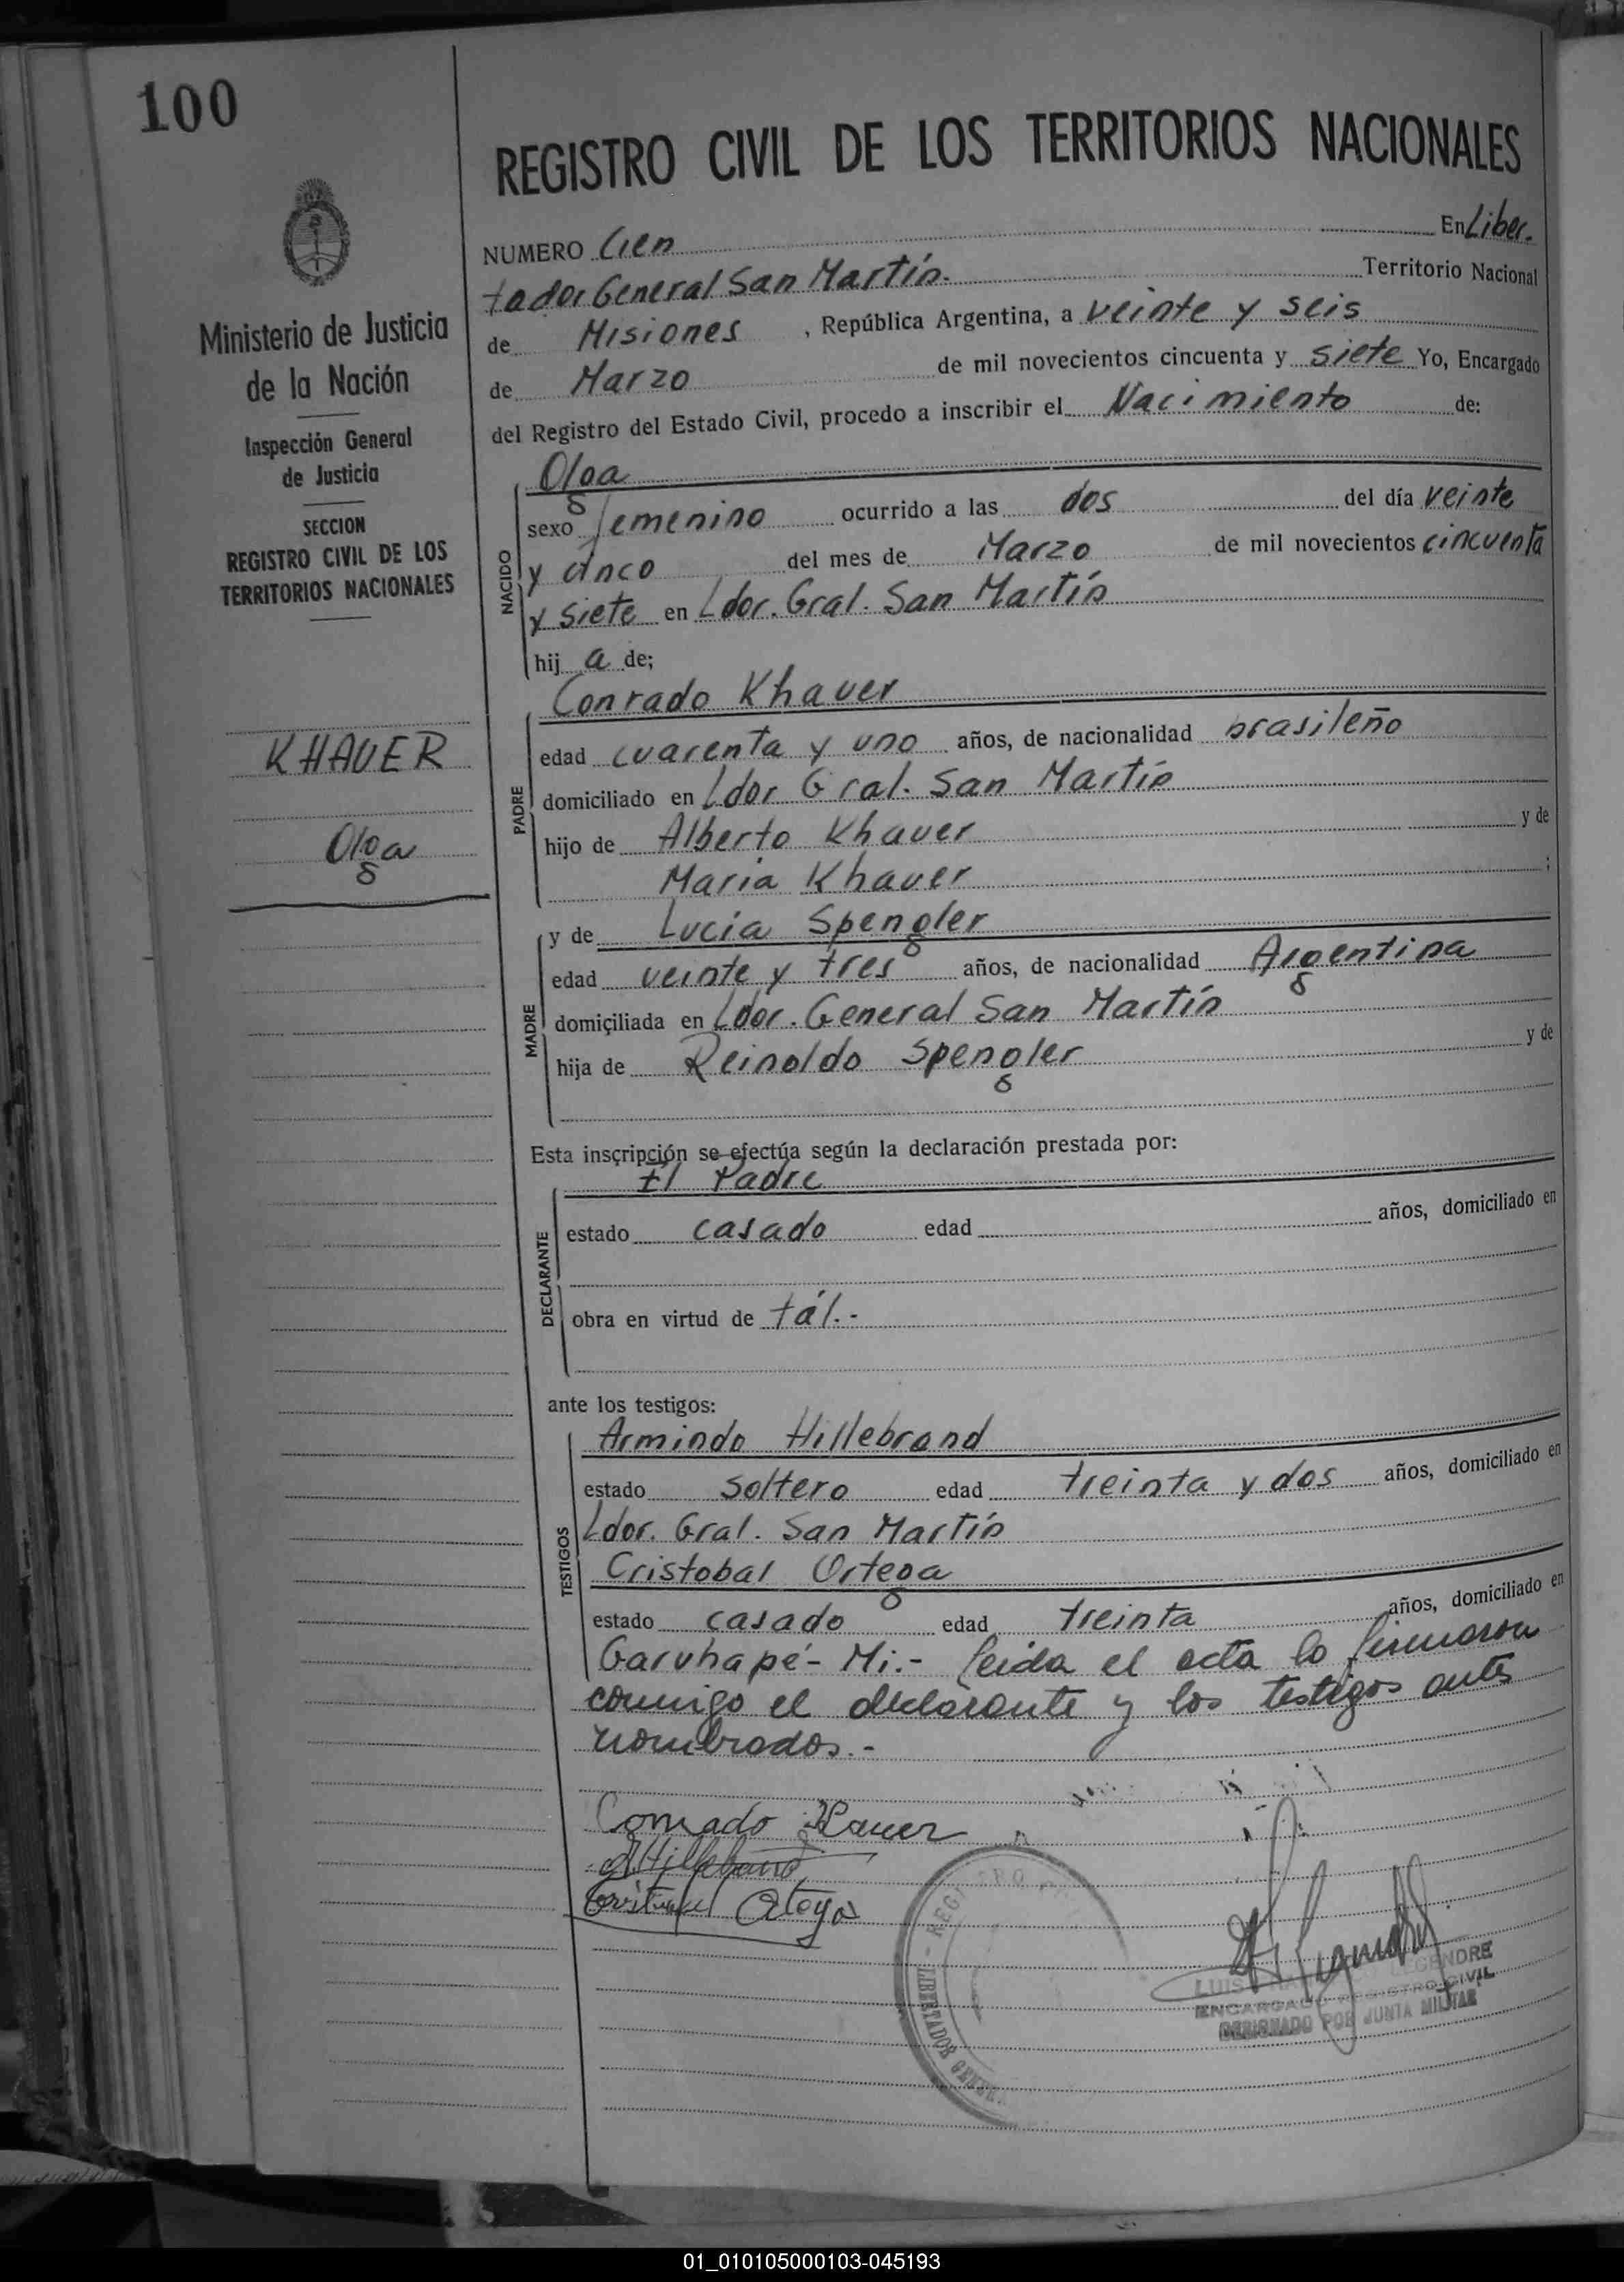 100
Ministerio de Justicia
de la Nación
Inspección General
de Justicia
SECCION
REGISTRO CIVIL DE LOS
TERRITORIOS NACIONALES
KHAUER
Olga
REGISTRO CIVIL DE LOS TERRITORIOS NACIONALES
NUMERO Cien En Liber.
tador General San Martín. Territorio Nacional
de Misiones, República Argentina, a veinte y seis
de Marzo de mil novecientos cincuenta y siete Yo, Encargado
del Registro del Estado Civil, procedo a inscribir el Nacimiento de:
NACIDO
Olga
sexo femenino ocurrido a las dos del día veinte
y cinco del mes de Marzo de mil novecientos cincuenta
y siete en Ldor. Gral. San Martín
hij a de;
PADRE
Conrado Khauer
edad cuarenta y uno años, de nacionalidad brasileño
domiciliado en Ldor Gral. San Martín
hijo de Alberto Khauer y de
Maria Khauer ;
MADRE
y de Lucía Spengler
edad veinte y tres años, de nacionalidad Argentina
domiçiliada en Ldor. General San Martín
hija de Reinoldo Spengler y de
Esta insçripción se efectúa según la declaración prestada por:
DECLARANTE
El Padre
estado casado edad años, domiciliado en
obra en virtud de tál.-
ante los testigos:
TESTIGOS
Armindo Hillebrand
estado soltero edad treinta y dos años, domiciliado en
Ldor. Gral. San Martín
Cristobal Ortega
estado casado edad treinta años, domiciliado en
Garuhapé- Mi.- leida el acta la firmaron
conmigo el declarante y los testigos antes
nombrados.-
Conrado Kauer
A Hillebrand
Cristobal Ortega
REGISTRO
LIBERTADOR GENERAL
LUIS LEGENDRE
ENCARGADO REGISTRO CIVIL
DESIGNADO POR JUNTA MILITAR
01_010105000103-045193